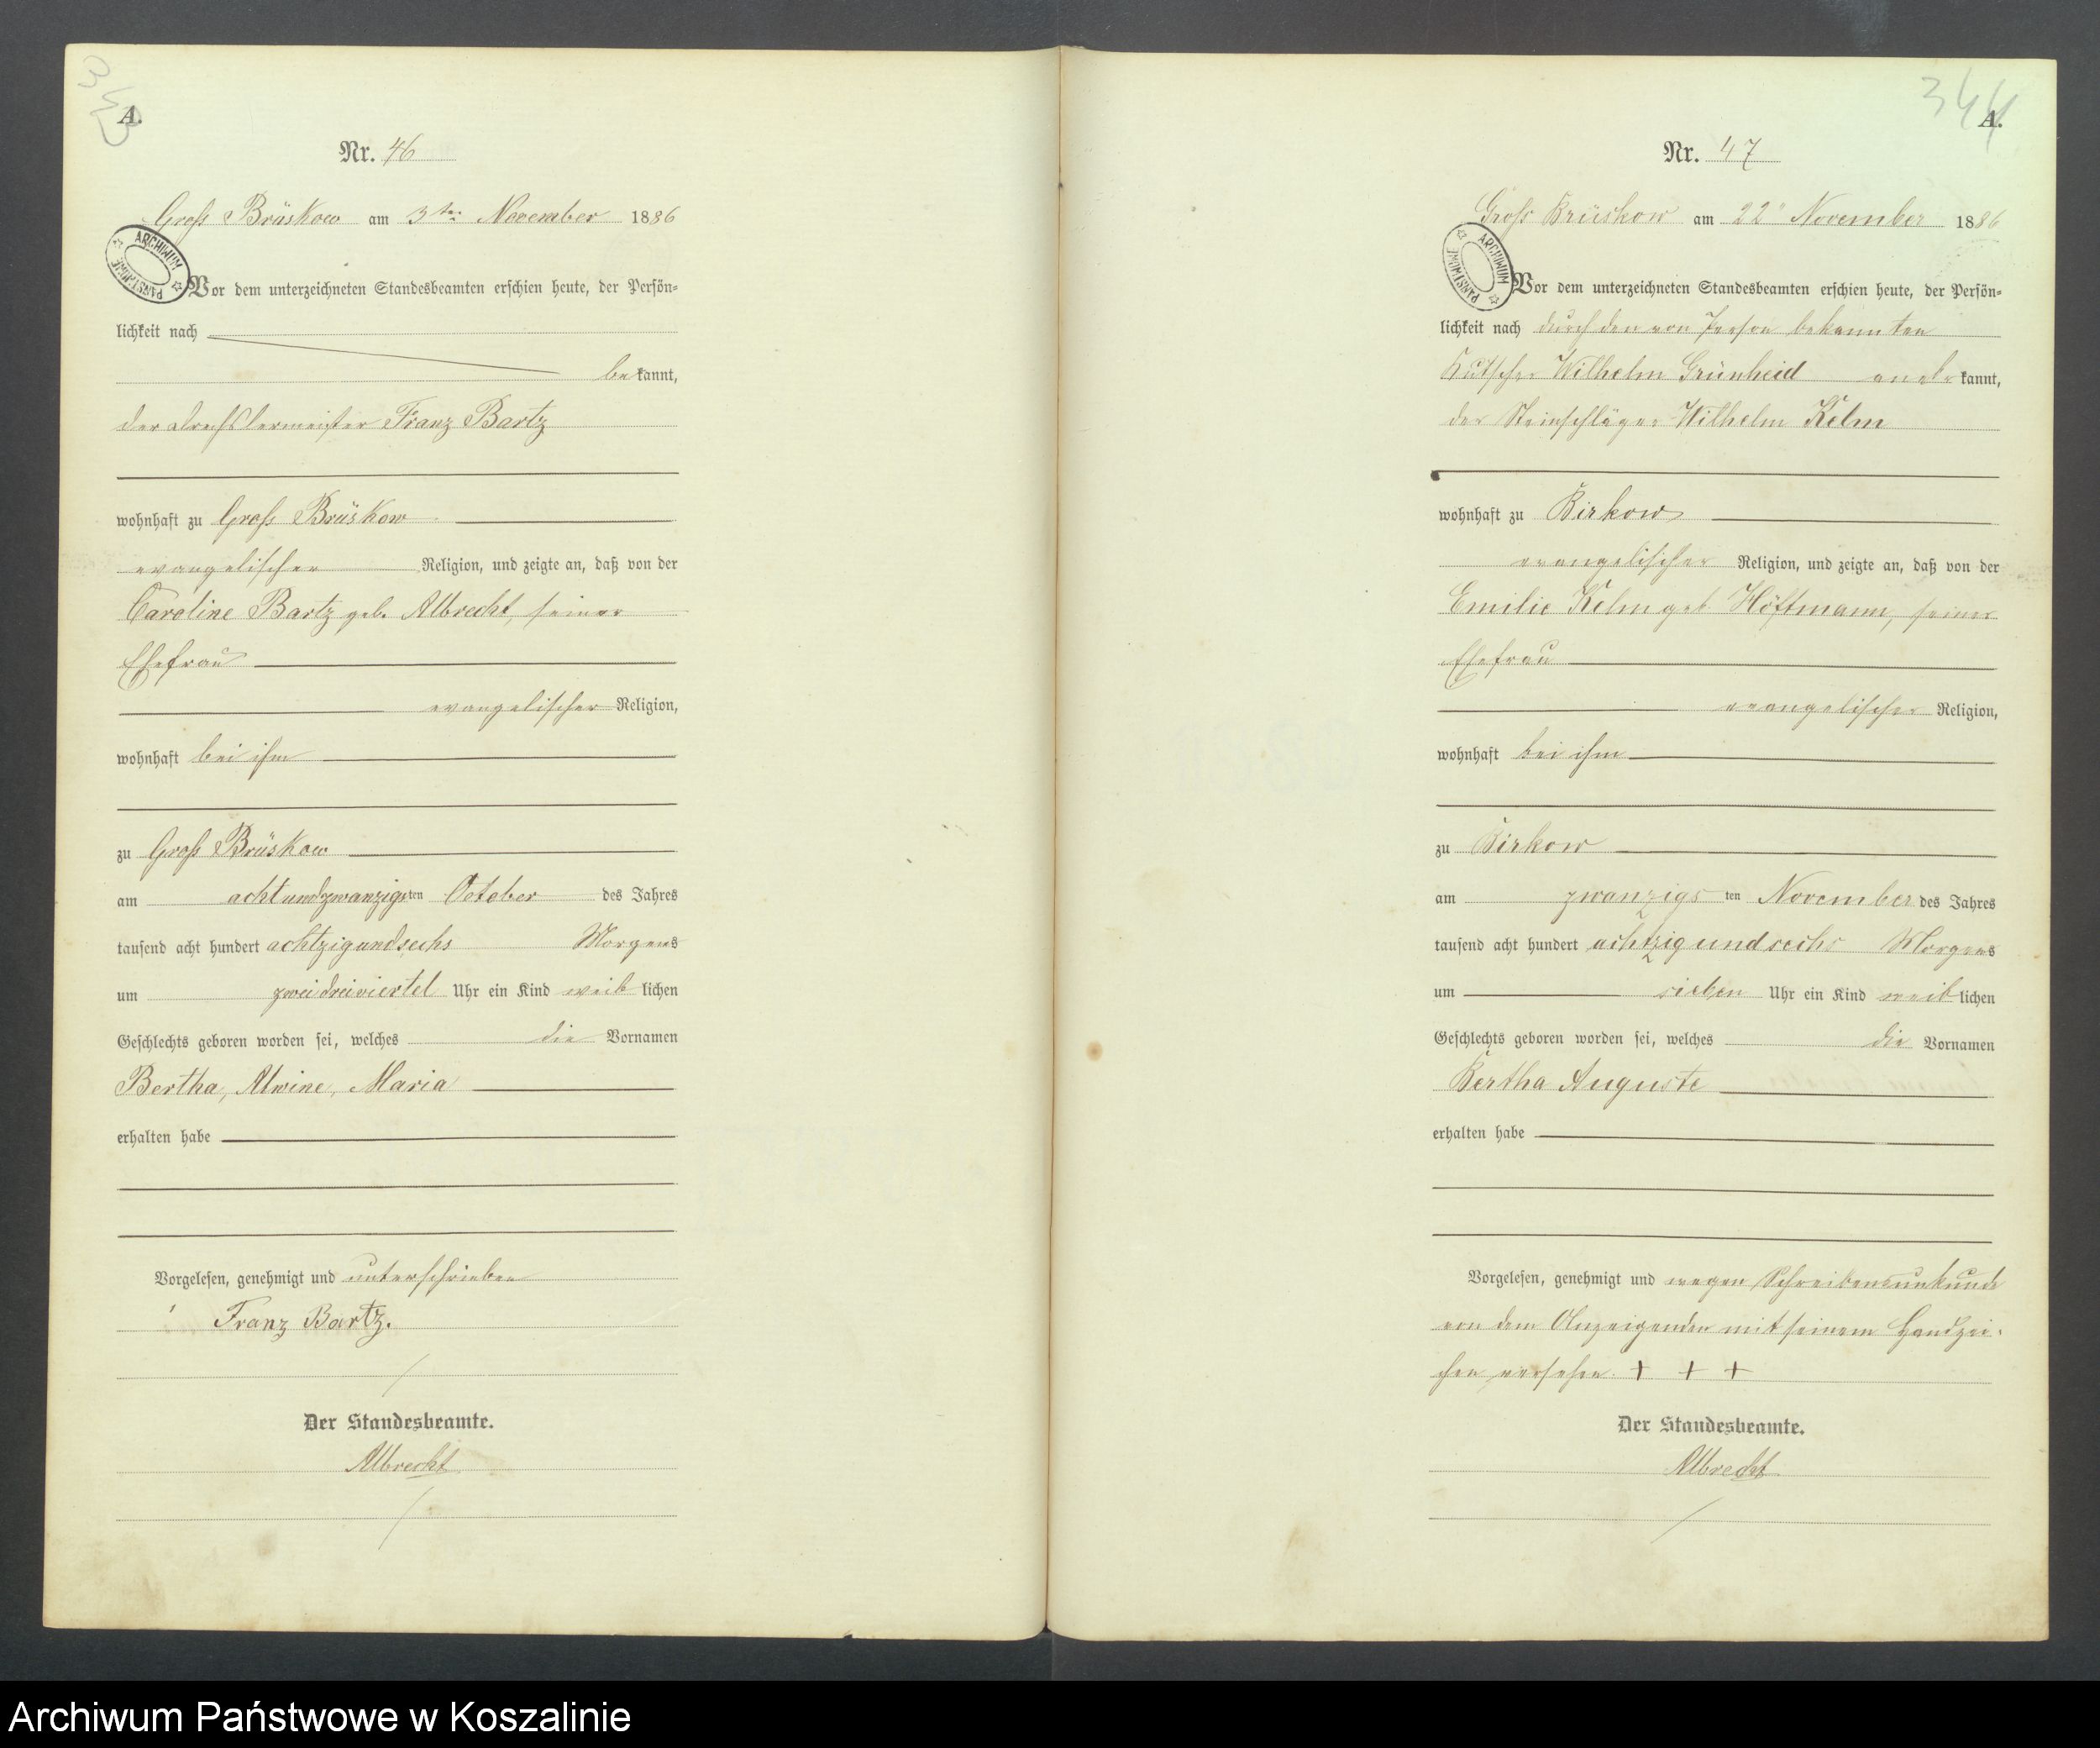 343
A.
Nr. 46
Groß Brüskow am 3ten November 1886
ARCHIWUM PAŃSTWOWE
Vor dem unterzeichneten Standesbeamten erschien heute, der Persön=
lichkeit nach
bekannt,
der Drechslermeister Franz Bartz
wohnhaft zu Groß Brüskow
evangelischer Religion, und zeigte an, daß von der
Caroline Bartz geb. Albrecht, seiner
Ehefrau
evangelischer Religion,
wohnhaft bei ihm
zu Groß Brüskow
am achtundzwanzigsten October des Jahres
tausend acht hundert achtzigundsechs Morgens
um zweidreiviertel Uhr ein Kind weiblichen
Geschlechts geboren worden sei, welches die Vornamen
Bertha, Alwine, Maria
erhalten habe
Vorgelesen, genehmigt und unterschrieben
Franz Bartz.
Der Standesbeamte.
Albrecht
344
A.
Nr. 47
Groß Brüskow am 22" November 1886
ARCHIWUM PAŃSTWOWE
Vor dem unterzeichneten Standesbeamten erschien heute, der Persön=
lichkeit nach durch den von Person bekannten
Kutscher Wilhelm Grünheid anerkannt,
der Steinschläger Wilhelm Kelm
wohnhaft zu Birkow
evangelischer Religion, und zeigte an, daß von der
Emilie Kelm geb. Höftmann, seiner
Ehefrau
evangelischer Religion,
wohnhaft bei ihm
zu Birkow
am zwanzigsten November des Jahres
tausend acht hundert achtzig und sechs Morgens
um sieben Uhr ein Kind weiblichen
Geschlechts geboren worden sei, welches die Vornamen
Bertha Auguste
erhalten habe
Vorgelesen, genehmigt und wegen Schreibensunkunde
von dem Anzeigenden mit seinem Handzei-
chen versehen. + + +
Der Standesbeamte.
Albrecht
Archiwum Państwowe w Koszalinie